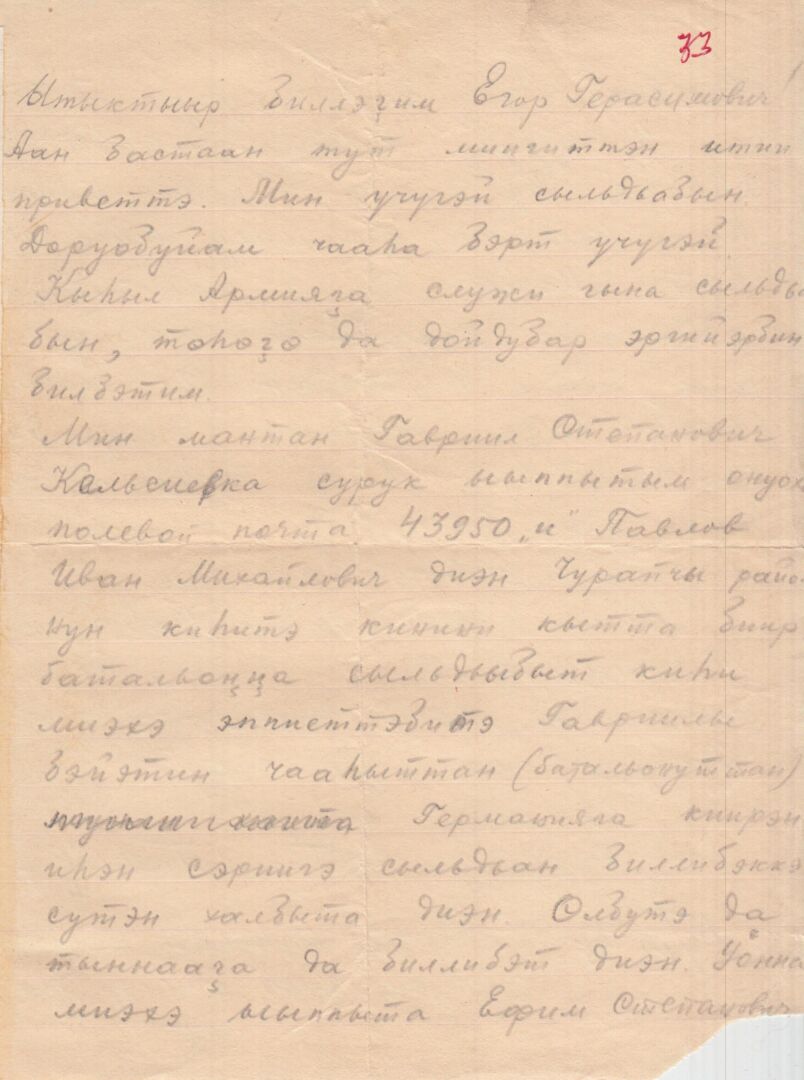 33
Ытыктыыр билләҕим Егор Герасимович!
Аан бастаан тут миигиттэн итии
приветтэ. Мин үчүгэй сыльдьабын.
Доруобуйам чааһа бэрт үчүгэй.
Кыһыл Армияҕа служи гына сыльдьа
бын, тоһоҕо да дойдубар эргийэрбин
билбэтим.
Мин мантан Гавриил Степанович
Кельсиевка сурук ыыппытым онуоха
полевой почта 43950 „и" Павлов
Иван Михайлович диэн Чурапчы райо
нун киһитэ кинини кытта биир
батальоҥҥа сыльдьыбыт киһи
миэхэ эппиеттэбитэ Гавриилы
бэйэтин чааһыттан (батальонуттан)
Германияҕа киирэн
иһэн сэриигэ сыльдьан биллибэккэ
сүтэн хаалбыта диэн. Өлбүтэ да
тыыннааҕа да биллибэт диэн. Уонна
миэхэ ыыппыта Ефим Степанович